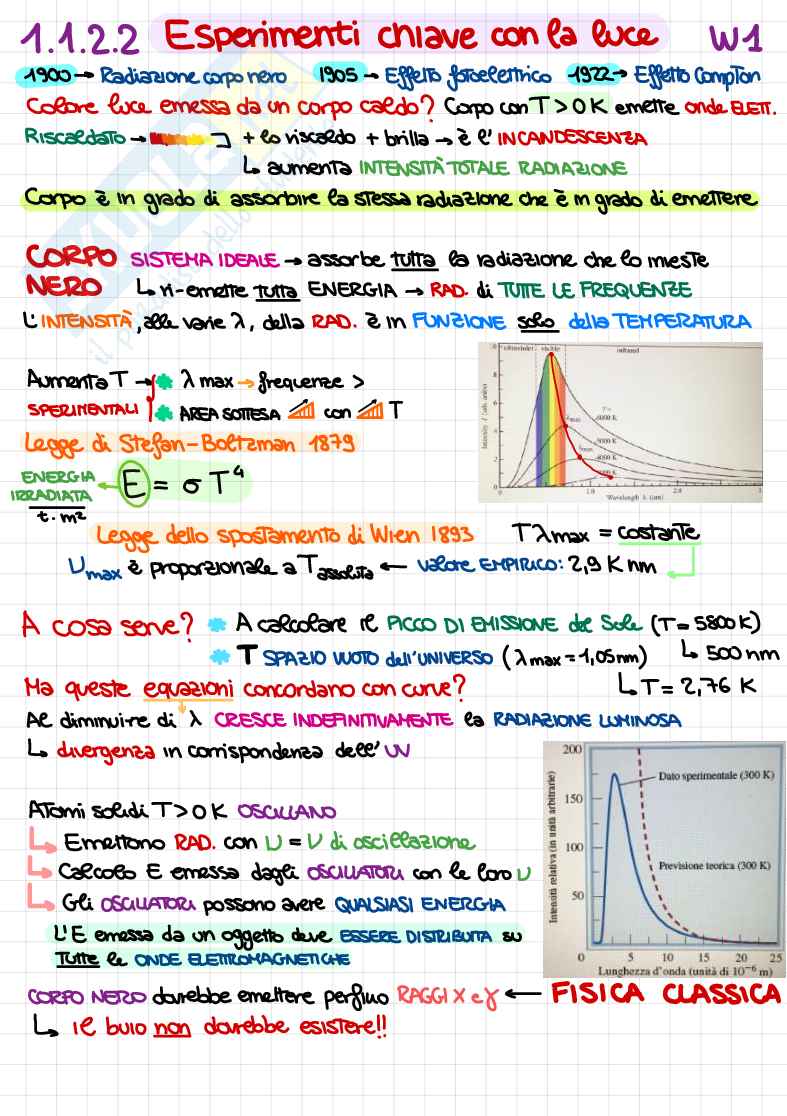 1.1.2.2 Esperimenti chiave con la luce W1
1900 → Radiazione corpo nero 1905 → Effetto fotoelettrico 1922 → Effetto Compton
Colore luce emessa da un corpo caldo? Corpo con T > 0 K emette onde ELETT.
Riscaldato → + lo riscaldo + brilla → è l'INCANDESCENZA
↳ aumenta INTENSITÀ TOTALE RADIAZIONE
Corpo è in grado di assorbire la stessa radiazione che è in grado di emettere
CORPO NERO SISTEMA IDEALE → assorbe tutta la radiazione che lo investe
↳ ri-emette tutta ENERGIA → RAD. di TUTTE LE FREQUENZE
L'INTENSITÀ, alle varie λ, della RAD. è in FUNZIONE solo della TEMPERATURA
Aumenta T → * λ max → frequenze >
SPERIMENTALI * AREA SOTTESA con T
Legge di Stefan-Boltzman 1879
ENERGIA IRRADIATA
t · m² ← E = σ T⁴
ultraviolet visible infrared
Intensity
8
6
4
2
0
T =
6000 K
5000 K
4000 K
λmax
λmax
0 1.0 2.0 3
Wavelength λ
Legge dello spostamento di Wien 1893 Tλmax = costante
νmax è proporzionale a Tassoluta ← valore EMPIRICO: 2,9 K nm
A cosa serve? * A calcolare il PICCO DI EMISSIONE del Sole (T = 5800 K)
↳ 500 nm
* T SPAZIO VUOTO dell'UNIVERSO (λmax = 1,05 nm)
↳ T = 2,76 K
Ma queste equazioni concordano con curve?
Al diminuire di λ CRESCE INDEFINITIVAMENTE la RADIAZIONE LUMINOSA
↳ divergenza in corrispondenza dell'UV
Atomi solidi T > 0 K OSCILLANO
↳ Emettono RAD. con ν = ν di oscillazione
↳ Calcolo E emessa dagli OSCILLATORI con le loro ν
↳ Gli OSCILLATORI possono avere QUALSIASI ENERGIA
L'E emessa da un oggetto deve ESSERE DISTRIBUITA su
Tutte le ONDE ELETTROMAGNETICHE
Intensità relativa (in unità arbitrarie)
200
150
100
50
Dato sperimentale (300 K)
Previsione teorica (300 K)
0 5 10 15 20 25
Lunghezza d'onda (unità di 10⁻⁶ m)
CORPO NERO dovrebbe emettere perfino RAGGI X e γ ← FISICA CLASSICA
↳ il buio non dovrebbe esistere!!